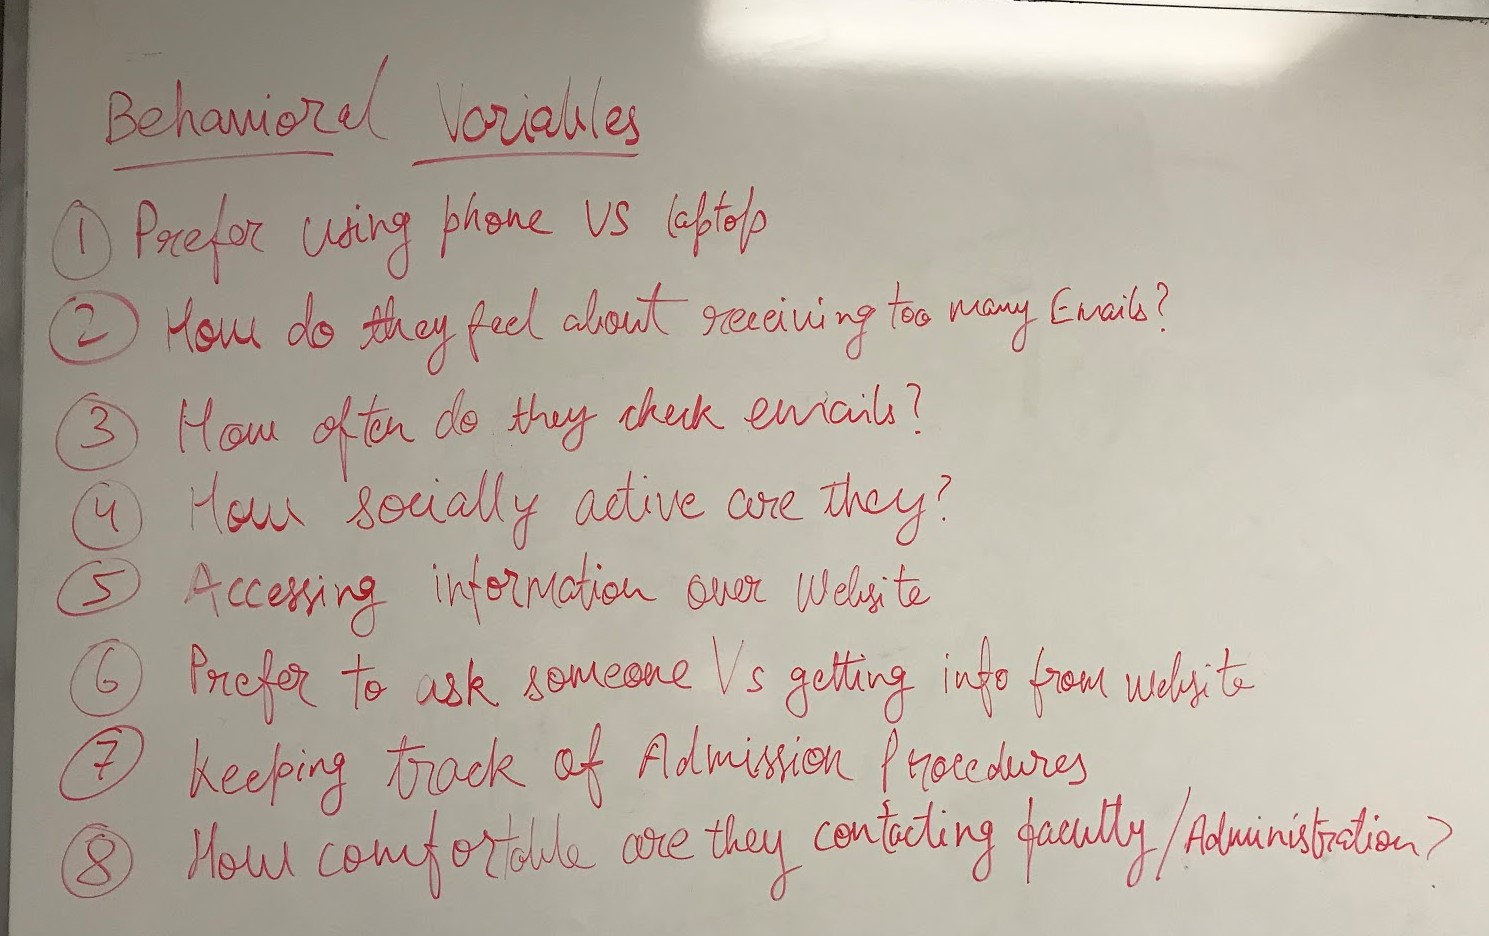 Behavioral Variables
1 Prefer using phone VS laptop
2 How do they feel about receiving too many Emails?
3 How often do they check emails?
4 How socially active are they?
5 Accessing information over Website
6 Prefer to ask someone Vs getting info from website
7 Keeping track of Admission Procedures
8 How comfortable are they contacting faculty/Administration?